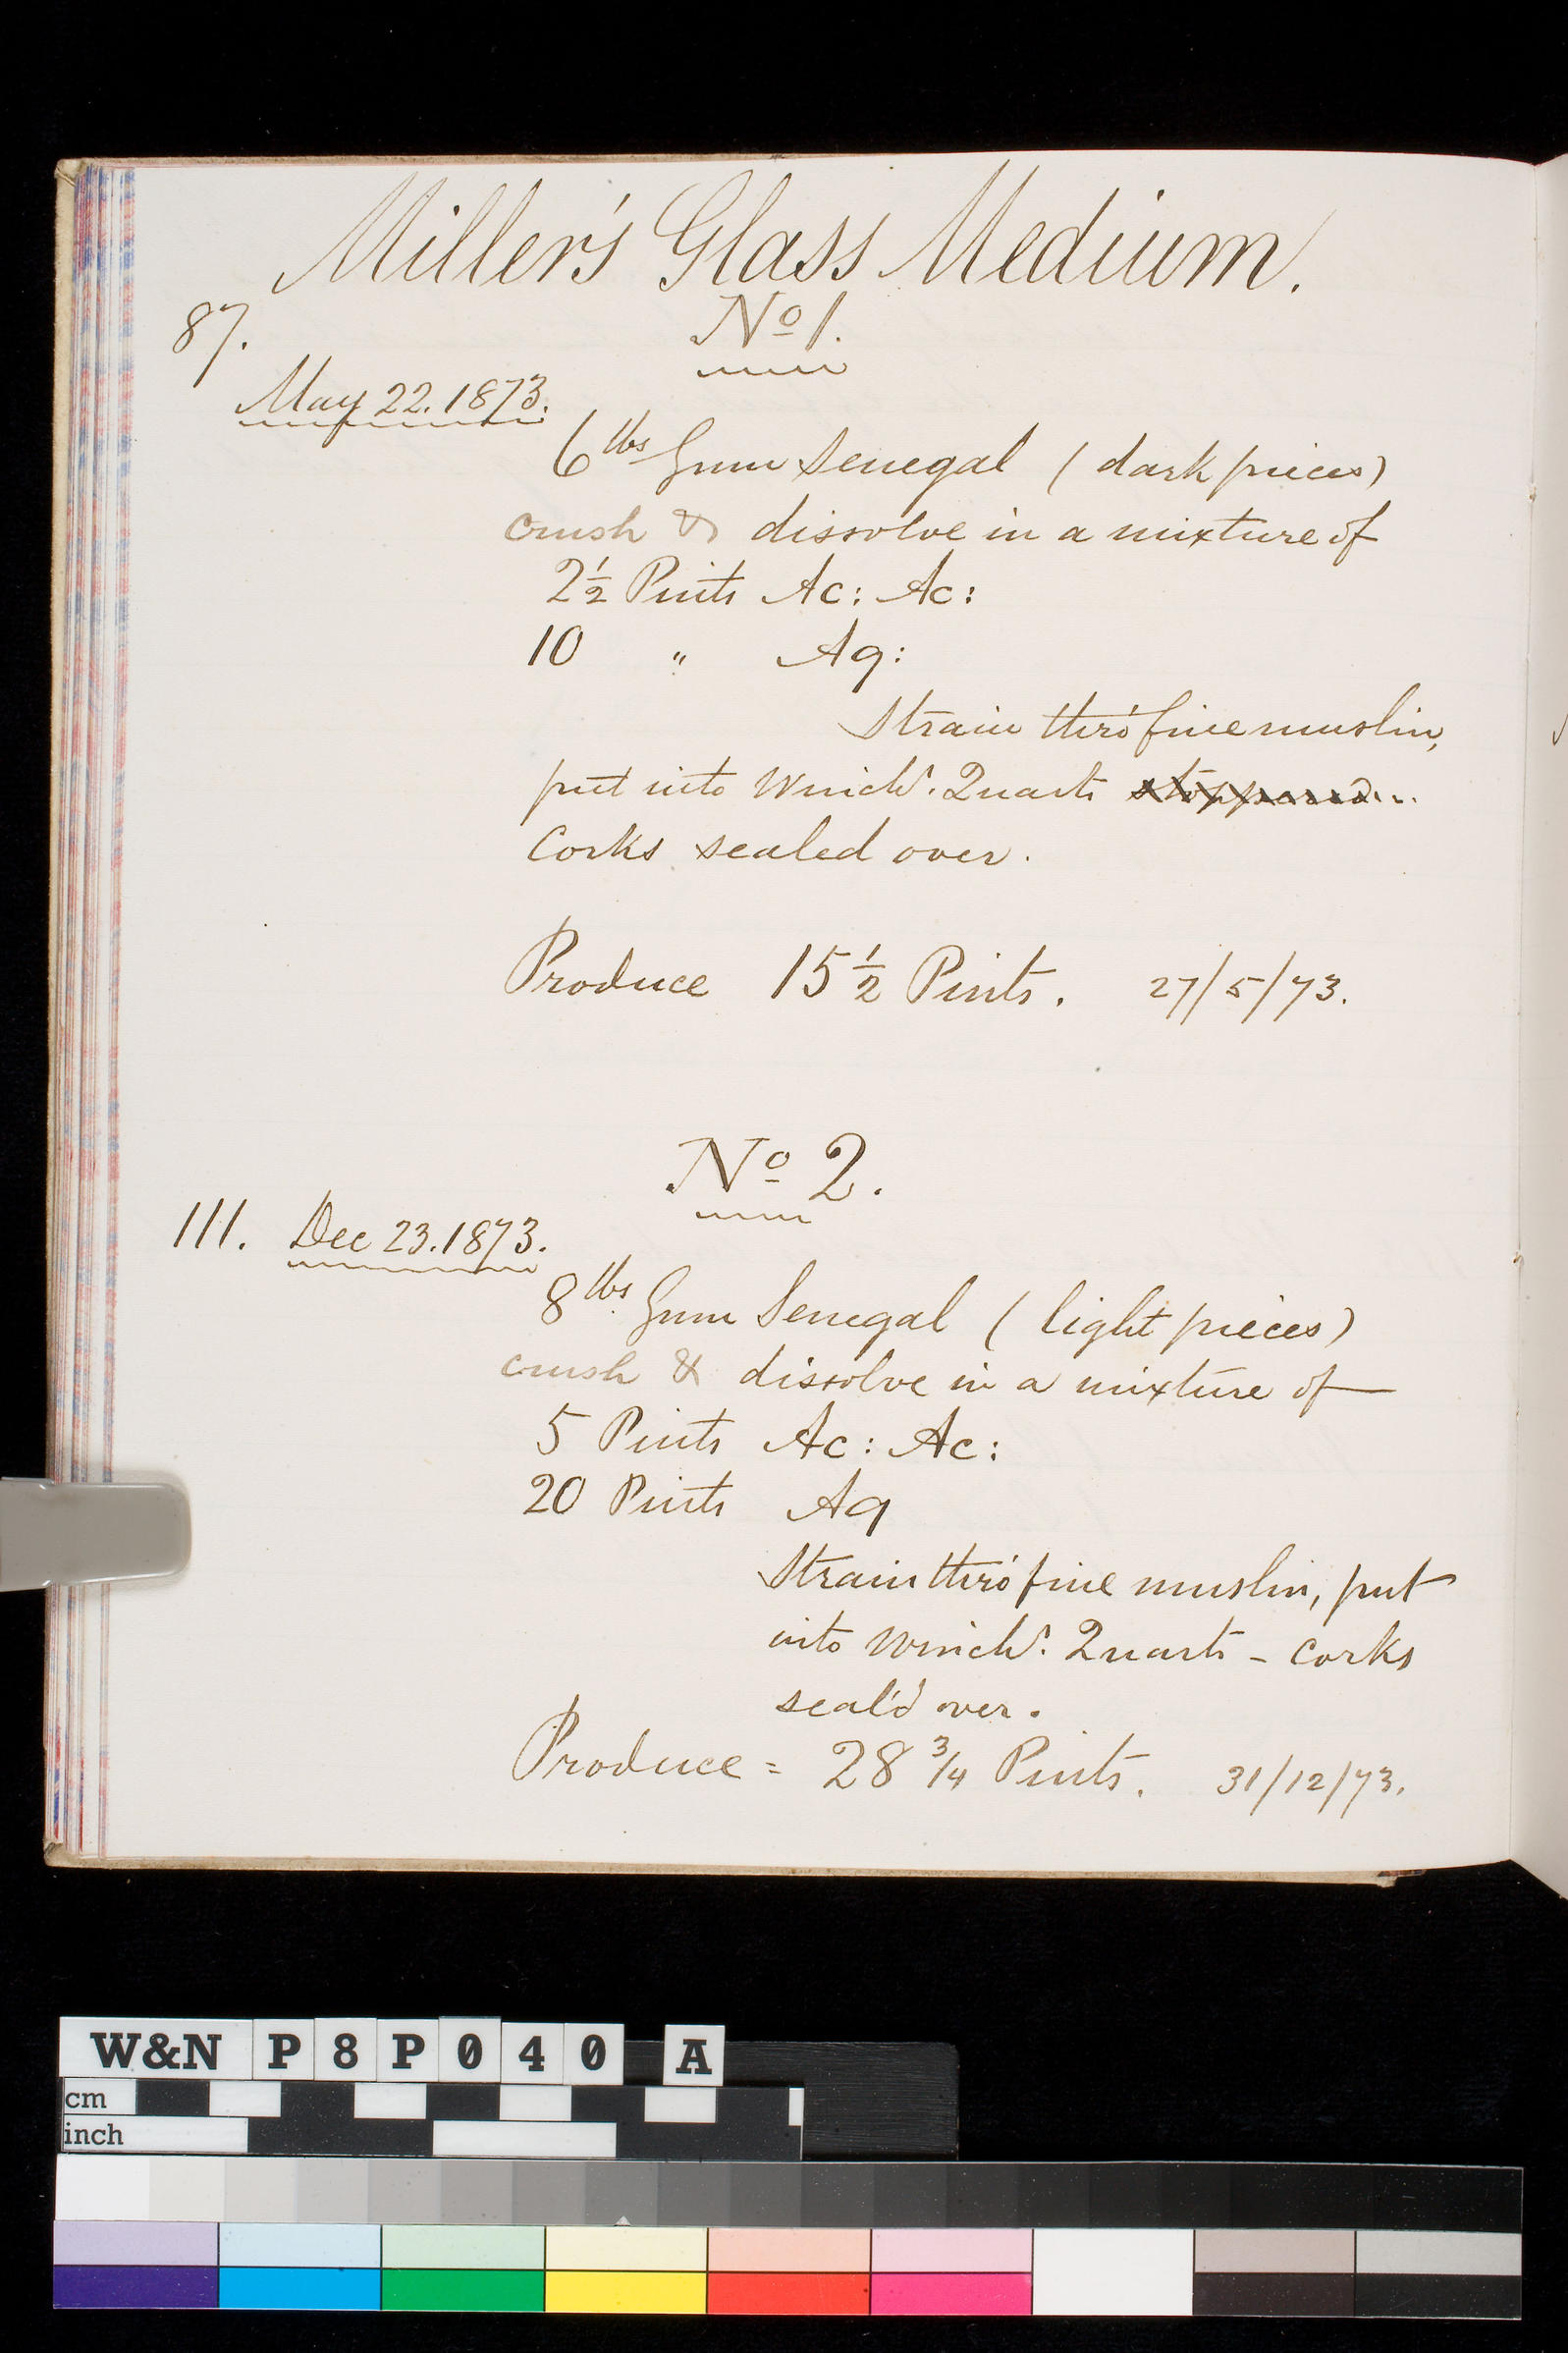 Miller's Glass Medium.
87.
Nº 1.
May 22. 1873.
6 lbs Gum Senegal ( dark pieces )
crush & dissolve in a mixture of
2½ Pints Ac: Ac:
10 " Aq:
Strain thro' fine muslin,
put into Winchr. Quarts stoppered..
Corks sealed over.
Produce 15½ Pints. 27/5/73.
Nº 2.
111. Dec 23. 1873.
8 lbs Gum Senegal ( light pieces )
crush & dissolve in a mixture of
5 Pints Ac: Ac:
20 Pints Aq
Strain thro' fine muslin, put
into Winchr. Quarts - corks
seal'd over.
Produce = 28 3/4 Pints. 31/12/73.
W&N P8P040 A
cm
inch